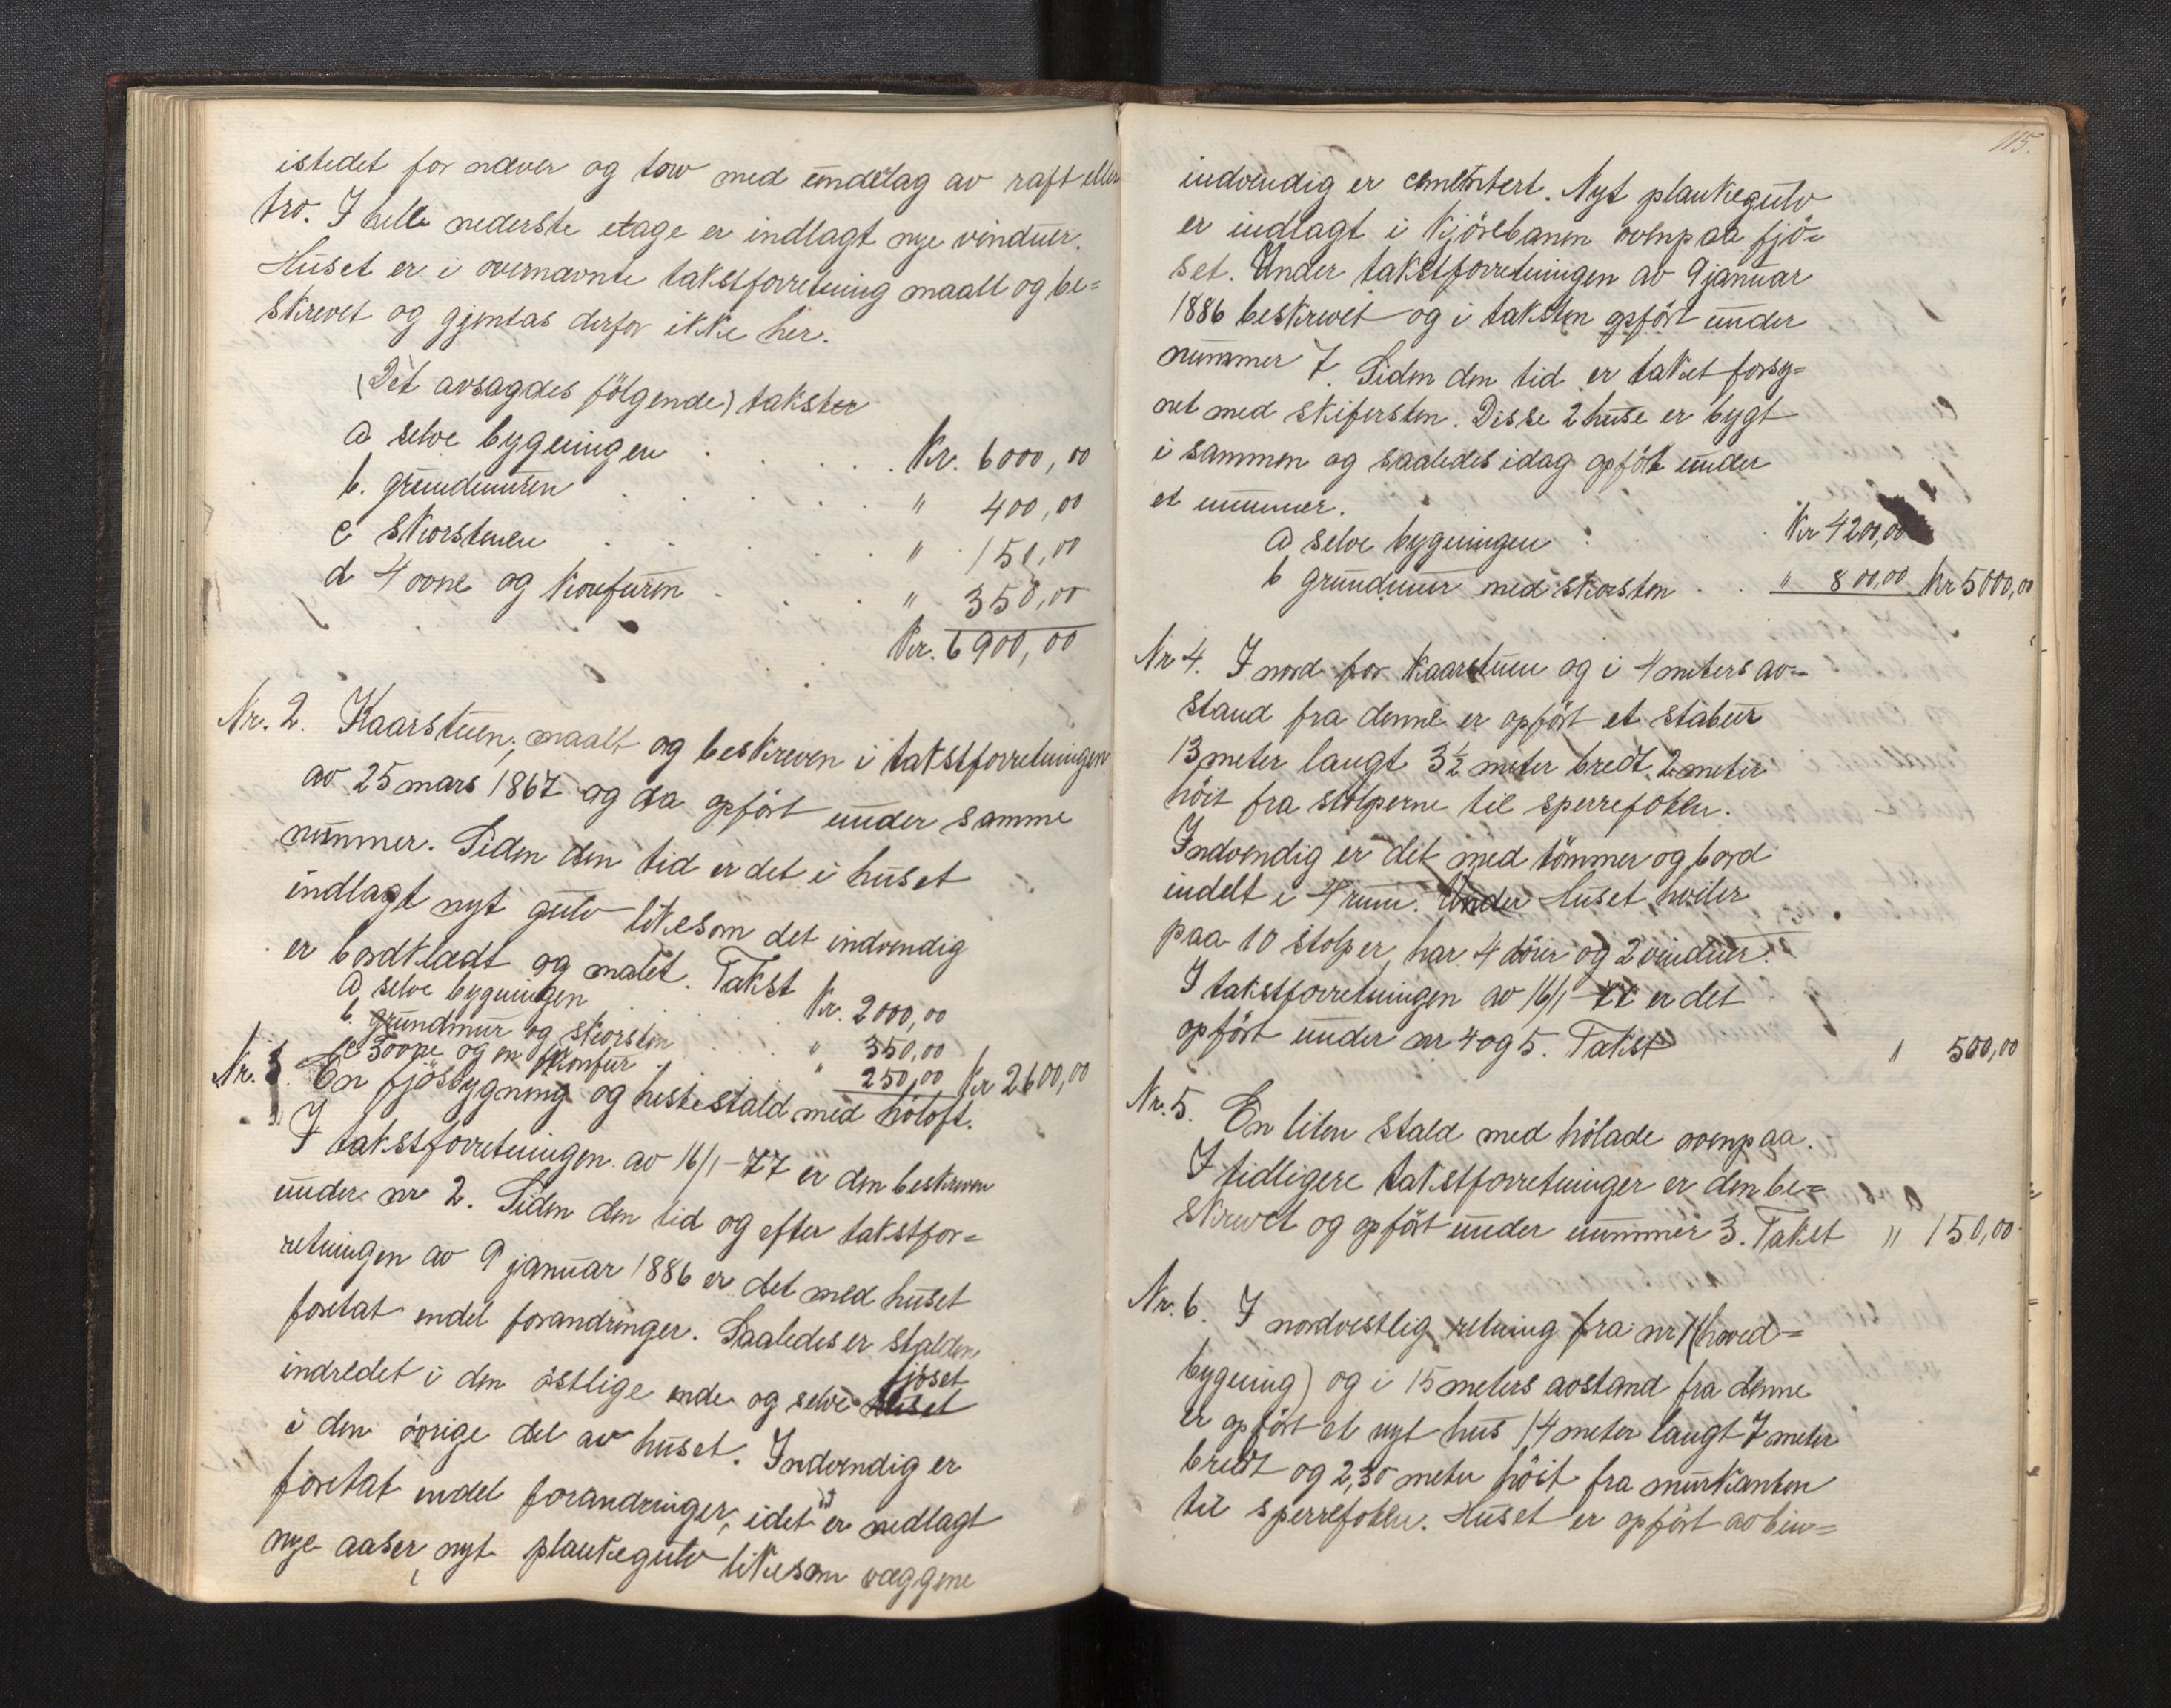 istedet for næver og torv med underlag av raft eller
tro. I hele nederste etage er indlagt nye vinduer.
Huset er i overnævnte takstforretning maalt og be=
skrevet og gjentas derfor ikke her.
(Det avsagdes følgende) takster
a selve bygningen . . . . Kr. 6000,00
b. grundmuren . . . . " 400,00
c skorstenen . . . . . " 150,00
d 4 ovne og komfuren . . . " 350,00
Kr. 6900,00
Nr. 2. Kaarstuen, maalt og beskreven i takstforretningen
av 25 mars 1867 og da opført under samme
nummer. Siden den tid er det i huset
indlagt nyt gulv likesom det indvendig
er bordklædt og malet. Takst
a selve bygningen . . . Kr. 2000,00
b. grundmur og skorsten . . . " 350,00
c 3 ovne og en komfur . . " 250,00 Kr 2600,00
Nr. 3. En fjøsbygning og hestestald med høloft.
I takstforretningen av 16/1-77 er den beskreven
under nr 2. Siden den tid og efter takstfor=
retningen av 9 januar 1886 er det med huset
foretat endel forandringer. Saaledes er stalden
indredet i den østlige ende og selve huset fjøset
i den øvrige del av huset. Indvendig er
foretat endel forandringer, idet er nedlagt
nye aaser, nyt plankegulv likesom væggene
115.
indvendig er cementert. Nyt plankegulv
er indlagt i kjørebanen ovenpaa fjø=
set. Under takstforretningen av 9 januar
1886 beskrevet og i taksten opført under
nummer 7. Siden den tid er taket forsy=
net med skifersten. Disse 2 huse er bygt
i sammen og saaledes idag opført under
et nummer.
a selve bygningen . . Kr 4200,00
b grundmur med skorsten . . " 800,00 Kr 5000,00
Nr 4. I nord for kaarstuen og i 4 meters av=
stand fra denne er opført et stabur
13 meter langt 3½ meter bredt 2 meter
høit fra stolperne til sperrefoten.
Indvendig er det med tømmer og bord
indelt i 4 rum. Under Huset hviler
paa 10 stolper, har 4 dører og 2 vinduer.
I takstforretningen av 16/1-77 er det
opført under nr 4 og 5. Takst " 500,00
Nr. 5. En liten stald med hølade ovenpaa.
I tidligere takstforretninger er den be=
skrevet og opført under nummer 3. Takst " 150,00
Nr. 6. I nordvestlig retning fra nr 1 (hoved=
bygning) og i 15 meters avstand fra denne
er opført et nyt hus 14 meter langt 7 meter
bredt og 2,30 meter høit fra murkanten
til sperrefoten. Huset er opført av bin=